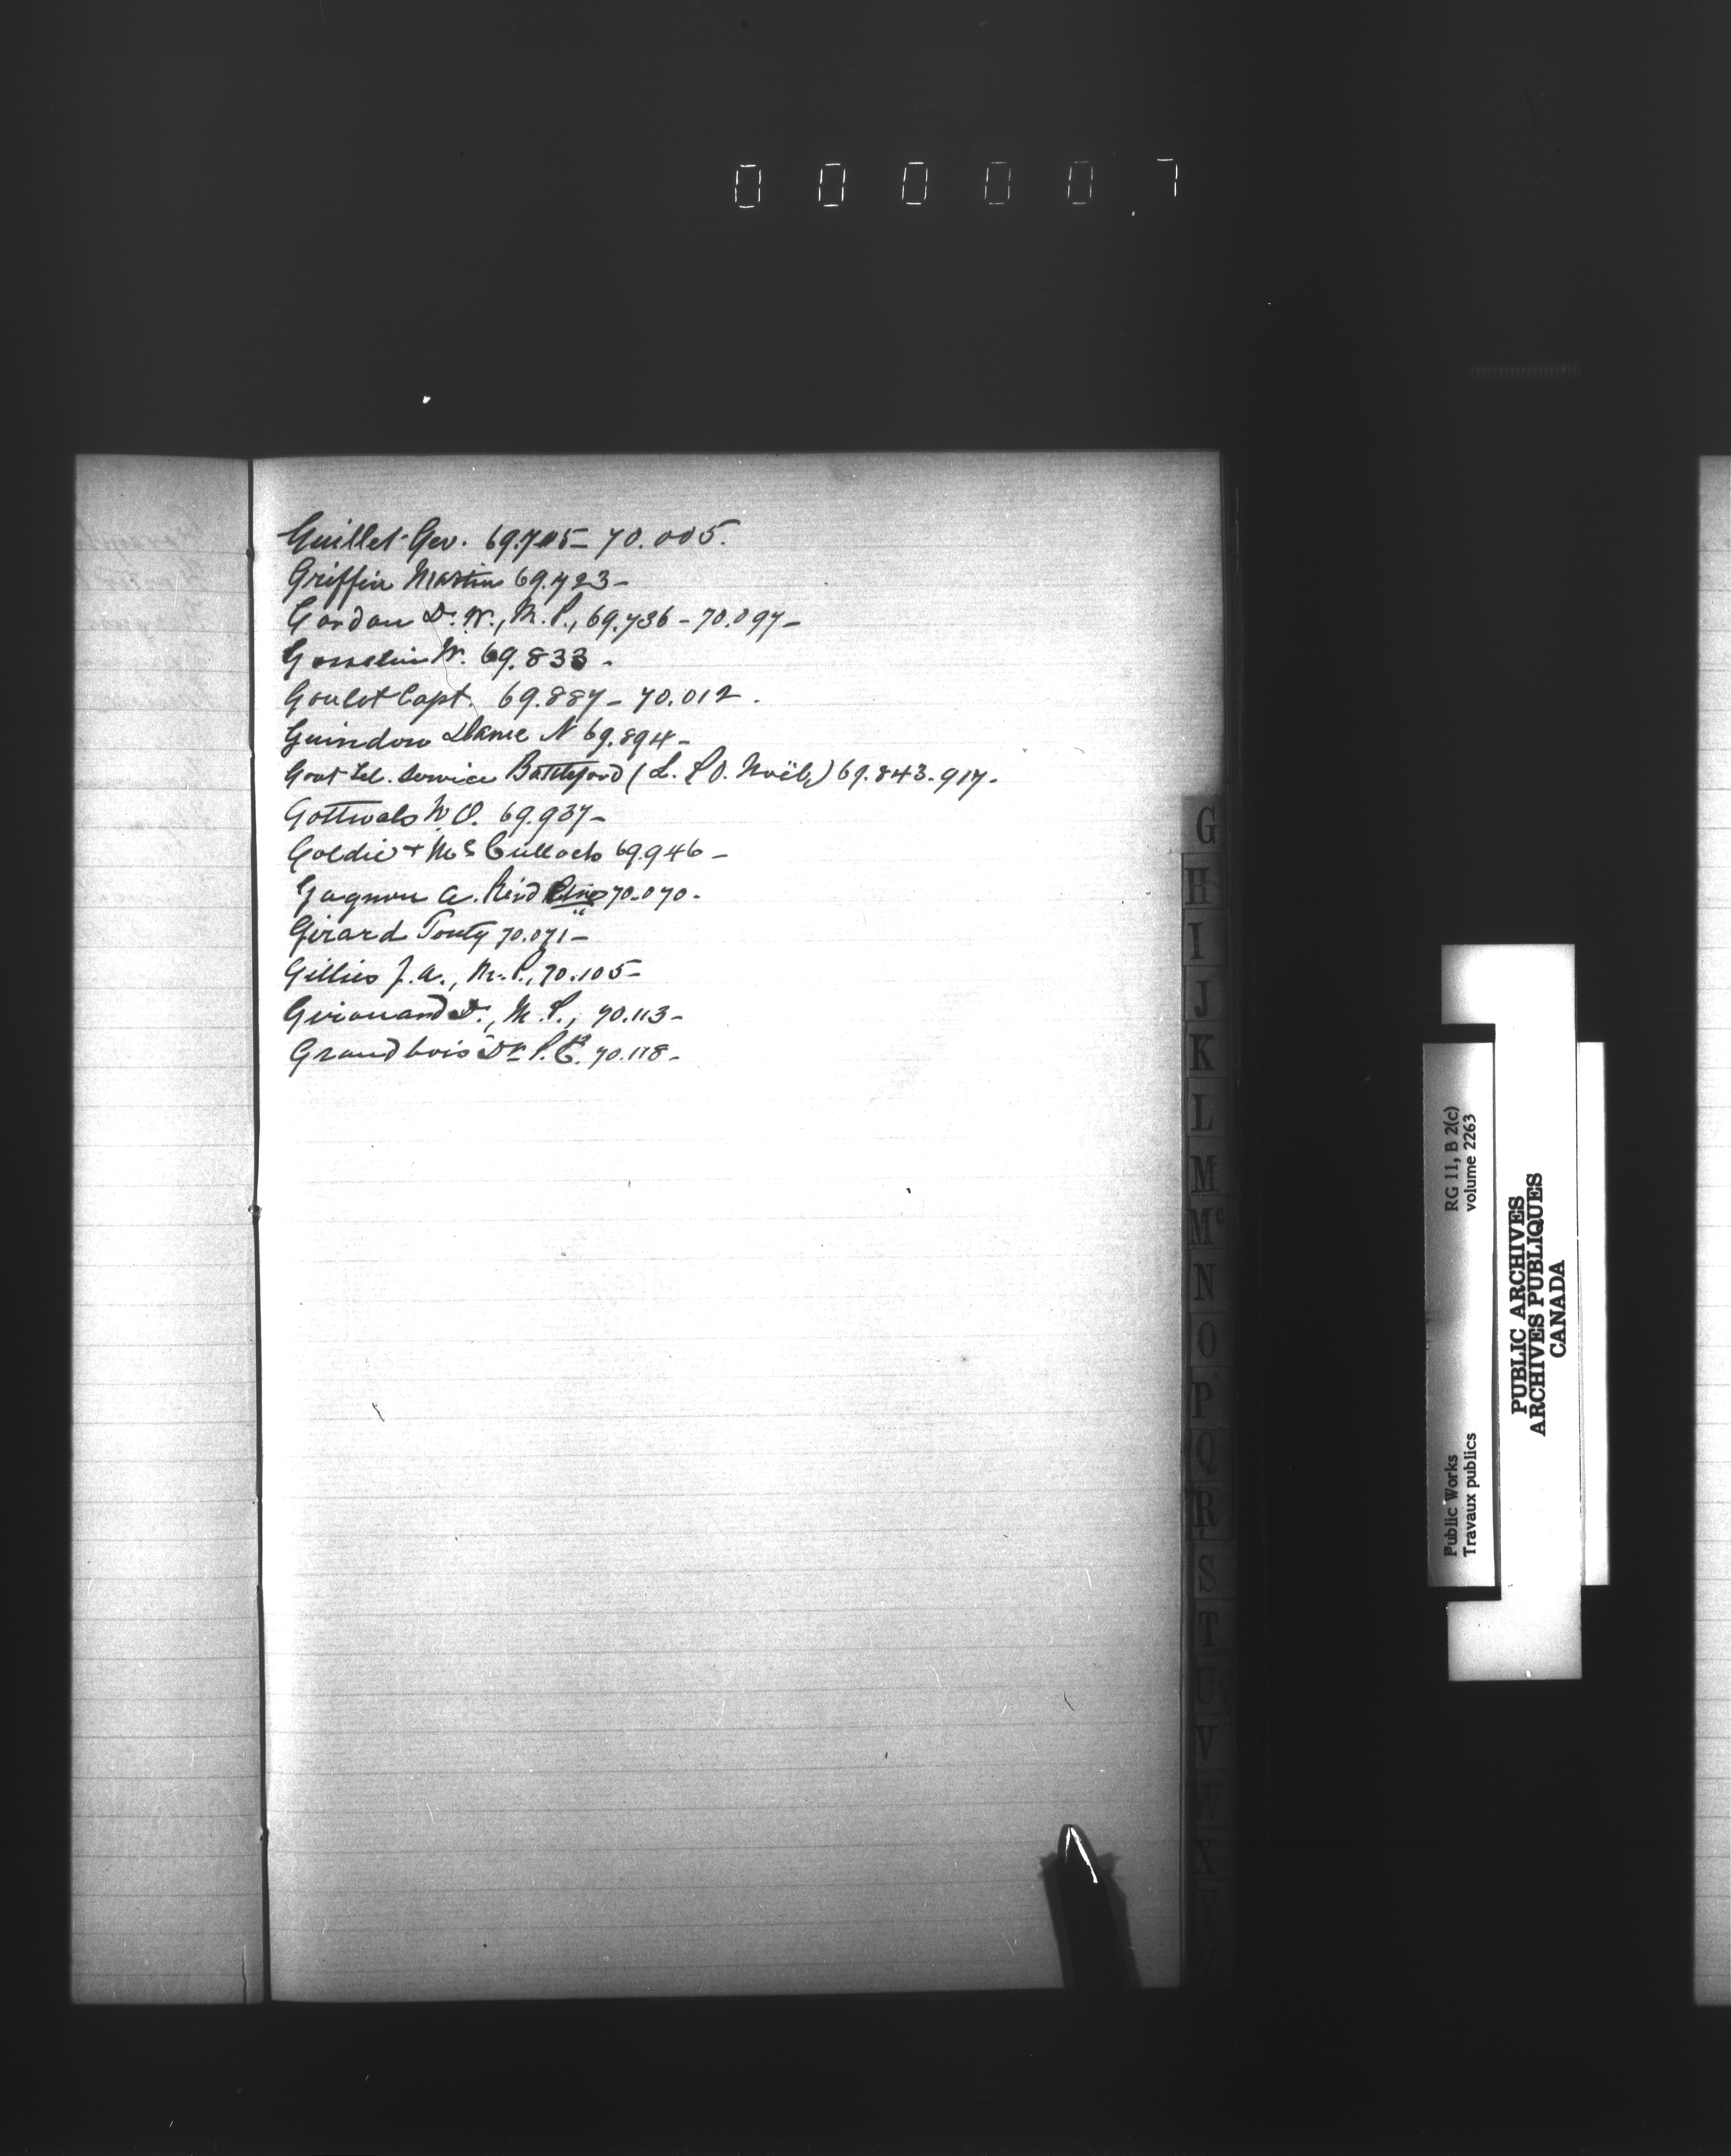 000007
Guillet Geo. 69.705 – 70.005.
Griffin Martin 69.723 –
Gordon D. W., M.P., 69.736 – 70.097 –
Gosselin N. 69.833 –
Goulet Capt. 69.887 – 70.012.
Guindon Dame N 69.894 –
Govt Tel. Service Battleford (L. P. O. Noël) 69.843.917 –
Gottwals W. O. 69.937 –
Goldie + McCulloch 69.946 –
Gagnon A. 70.070 –
Girard 70.071 –
Gillies J. A., M.P., 70.105 –
Girouard D., M.P., 70.113 –
Grandbois Dr. P. E. 70.118 –
G
H
I
J
K
L
M
Mc
N
O
P
Q
R
S
T
U
V
W
X
Y
Public Works RG 11, B 2(c)
Travaux publics volume 2263
PUBLIC ARCHIVES
ARCHIVES PUBLIQUES
CANADA